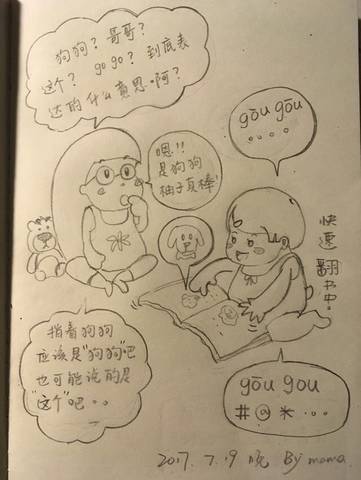 狗狗？哥哥？
这个？gogo？到底表
达的什么意思啊？
嗯!!
是狗狗
柚子真棒!
gōu gōu
。。。。
快速翻书中。
指着狗狗
应该是"狗狗"吧
也可能说的是
"这个"吧。。
gōu gou
#@*...
2017.7.19 晚 By mama